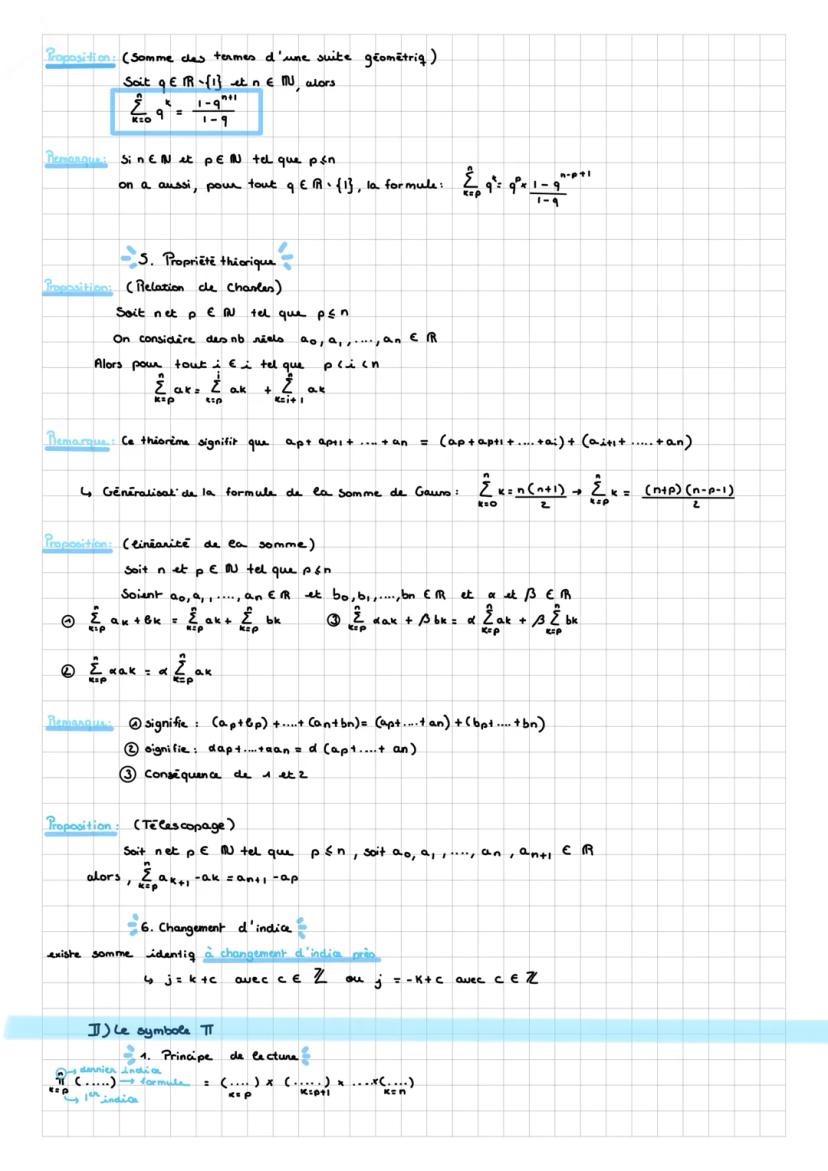 Proposition: (Somme des termes d'une suite géométriq)
Soit q ∈ ℝ \ {1} et n ∈ ℕ, alors
n∑k=0 q^k = (1-q^(n+1))/(1-q)
Remarque: Si n ∈ ℕ et p ∈ ℕ tel que p≤n
on a aussi, pour tout q ∈ ℝ \ {1}, la formule: n∑k=p q^k = q^p × (1-q^(n-p+1))/(1-q)
5. Propriété théorique
Proposition: (Relation de Chasles)
Soit n et p ∈ ℕ tel que p≤n
On considère des nb réels a0, a1, ...., an ∈ ℝ
Alors pour tout i ∈ i tel que p<i<n
n∑k=p ak = i∑k=p ak + n∑k=i+1 ak
Remarque: Ce théorème signifit que ap + ap+1 + .... + an = (ap+ap+1+....+ai)+(ai+1+.....+an)
↳ Généralisat° de la formule de la somme de Gauss: n∑k=0 k = n(n+1)/2 → n∑k=p k = (n+p)(n-p-1)/2
Proposition: (linéarité de la somme)
Soit n et p ∈ ℕ tel que p≤n
Soient a0, a1, ...., an ∈ ℝ et b0, b1, ...., bn ∈ ℝ et α et β ∈ ℝ
① n∑k=p ak + bk = n∑k=p ak + n∑k=p bk ③ n∑k=p αak + βbk = α n∑k=p ak + β n∑k=p bk
② n∑k=p αak = α n∑k=p ak
Remarque: ① signifie : (ap+bp)+....+(an+bn)=(ap+....+an)+(bp+....+bn)
② signifie: αap+....+αan = α (ap+....+ an)
③ Conséquence de 1 et 2
Proposition: (Télescopage)
Soit n et p ∈ ℕ tel que p≤n, soit a0, a1, ...., an, an+1 ∈ ℝ
alors, n∑k=p ak+1 - ak = an+1 - ap
6. Changement d'indice
existe somme identiq à changement d'indice près
↳ j = k+c avec c ∈ ℤ ou j = -k+c avec c ∈ ℤ
II) Le symbole Π
1. Principe de lecture
→ dernier indice
nΠk=p (.....) → formule = (....)k=p × (.....)k=p+1 × ....×(....)k=n
↳ 1er indice